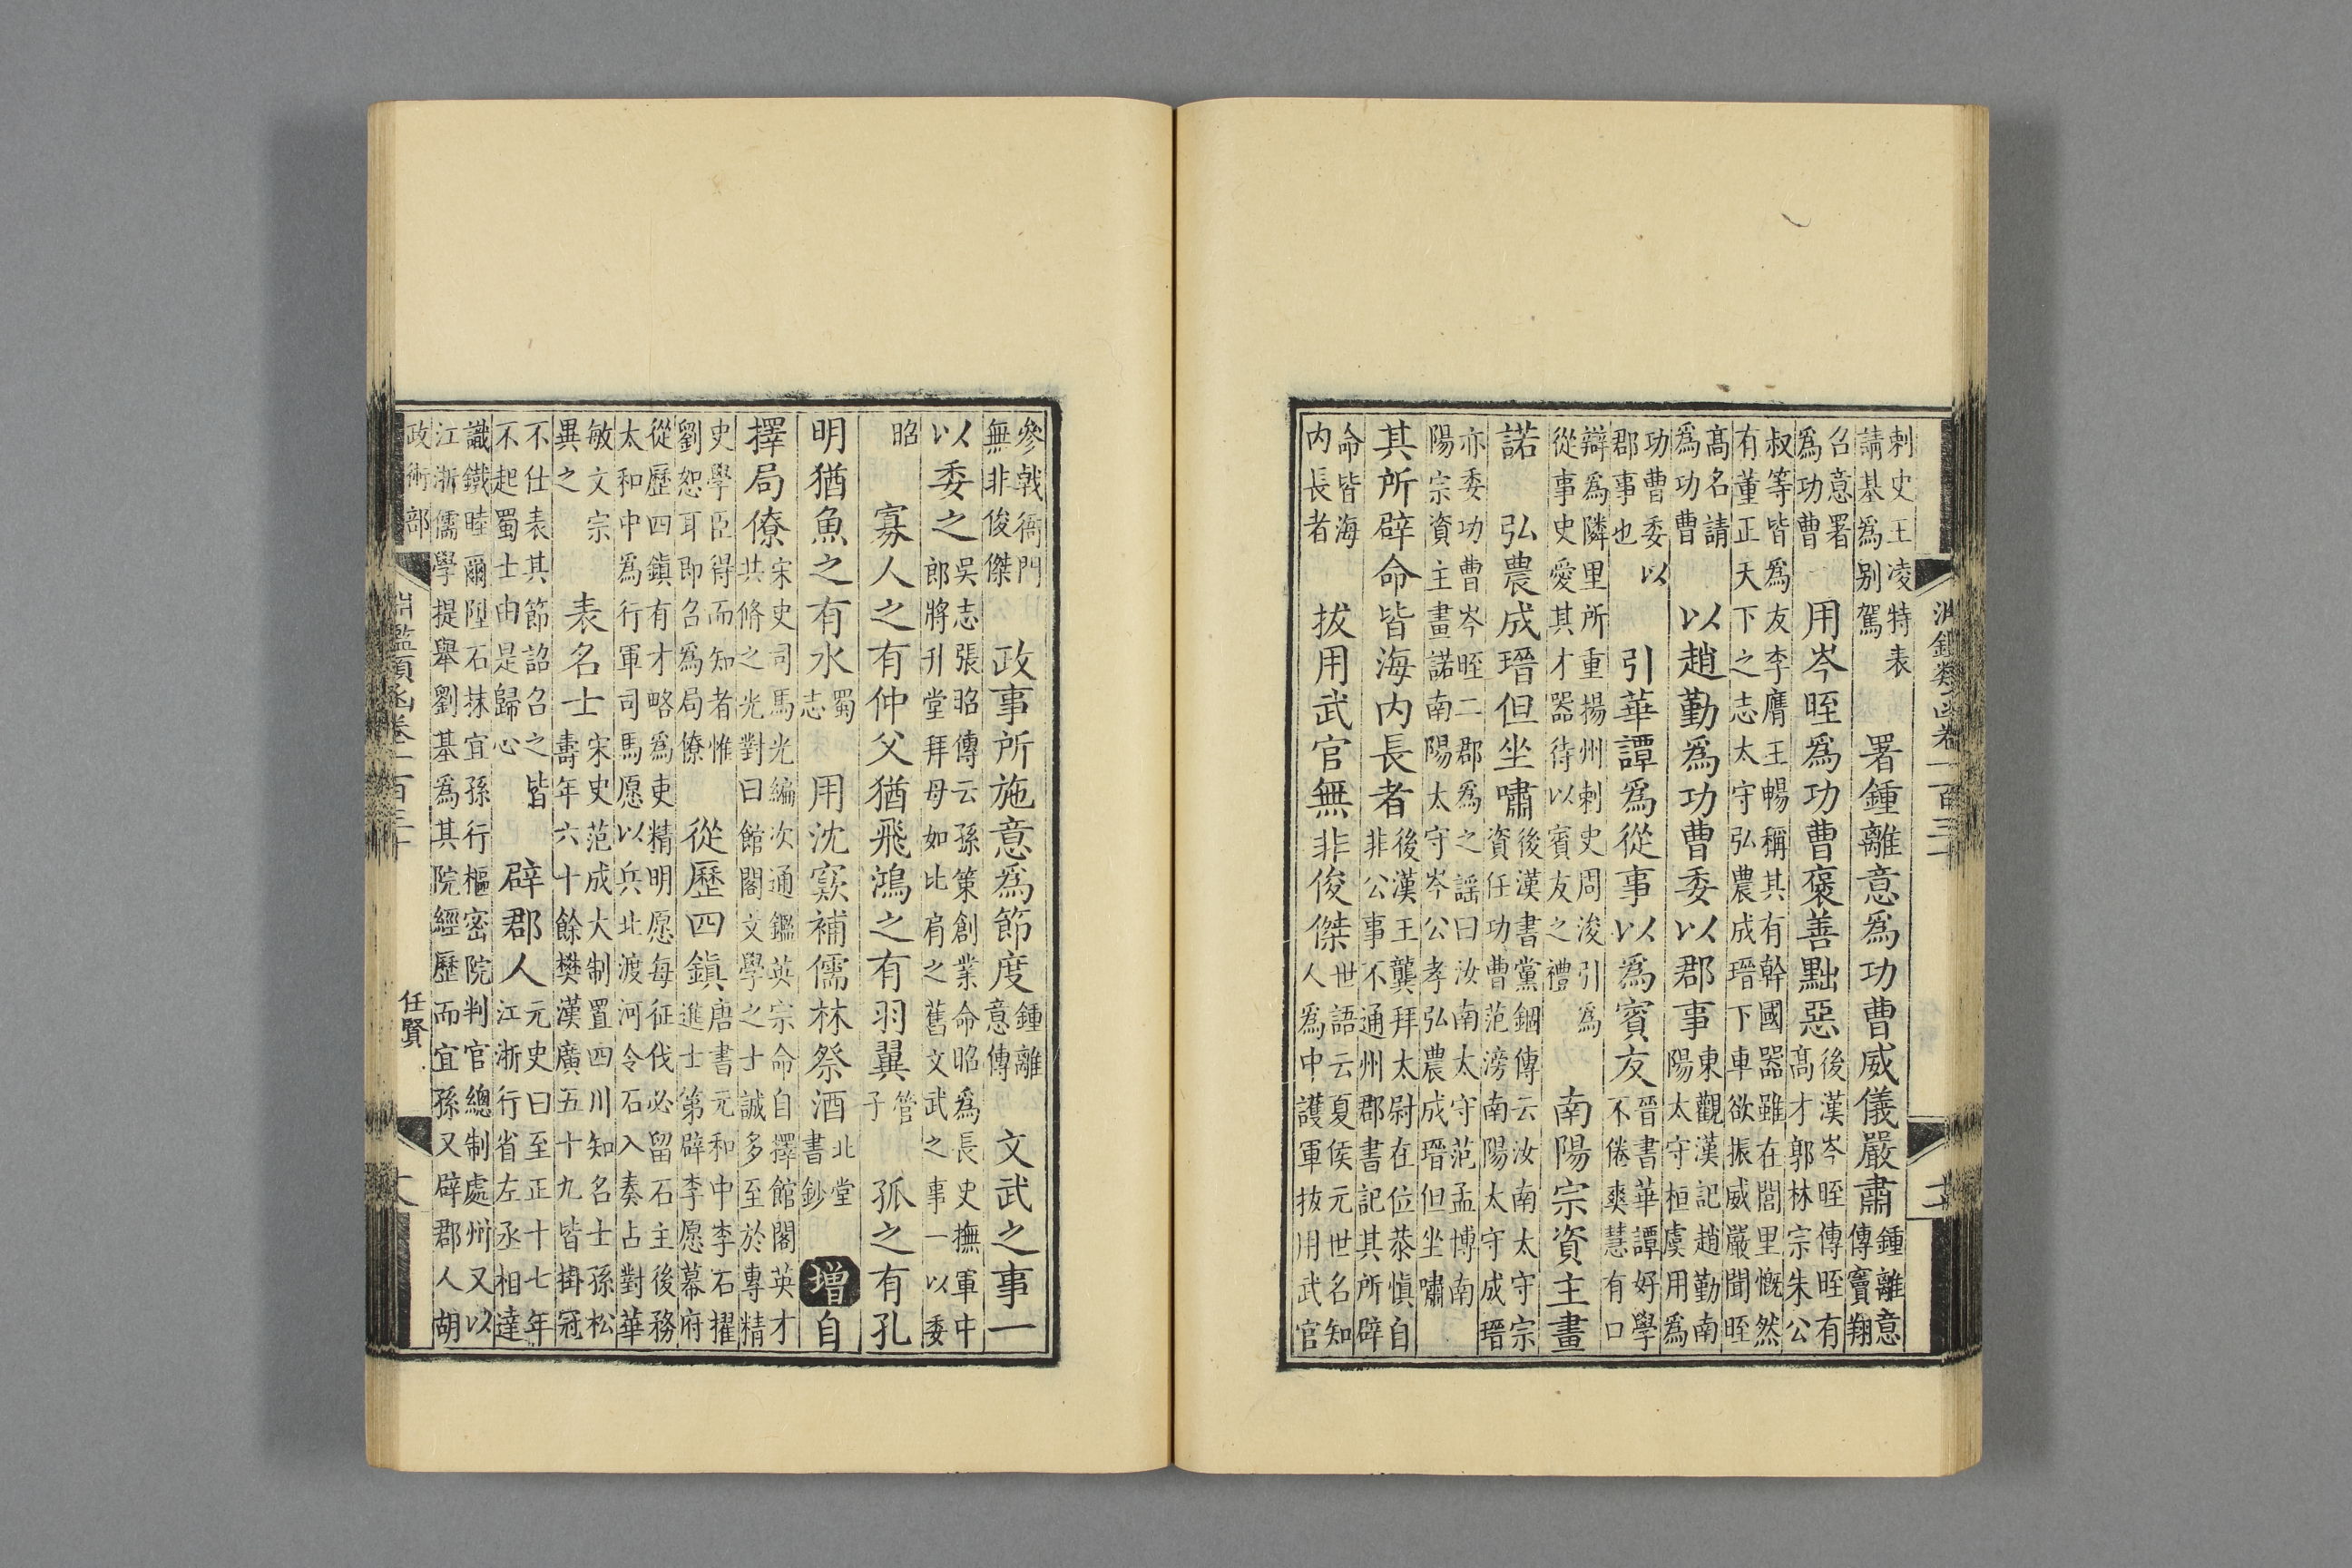 淵鑑類函卷一百三
刺史王凌特表
請基爲别駕
署鍾離意爲功曹威儀嚴肅
鍾離意
傳竇翔
召意署
爲功曹
用岑晊爲功曹褒善黜惡
後漢岑晊傳晊有
高才郭林宗朱公
叔等皆爲友李膺王暢稱其有幹國器雖在閭里慨然
有董正天下之志太守弘農成瑨下車欲振威嚴聞晊
高名請
爲功曹
以趙勤爲功曹委以郡事
東觀漢記趙勤南
陽太守桓虞用爲
功曹委以
郡事也
引華譚爲從事以爲賓友
晉書華譚好學
不倦爽慧有口
辯爲隣里所重揚州刺史周浚引爲
從事史愛其才器待以賓友之禮
南陽宗資主畫
諾　弘農成瑨但坐嘯
後漢書黨錮傳云汝南太守宗
資任功曹范滂南陽太守成瑨
亦委功曹岑晊二郡爲之謡曰汝南太守范孟博南
陽宗資主畫諾南陽太守岑公孝弘農成瑨但坐嘯
其所辟命皆海内長者
後漢王龔拜太尉在位恭慎自
非公事不通州郡書記其所辟
命皆海
内長者
拔用武官無非俊傑
世語云夏侯元世名知
人爲中護軍拔用武官
參戟衙門
無非俊傑
政事所施意爲節度
鍾離
意傳
文武之事一
以委之
吳志張昭傳云孫策創業命昭爲長史撫軍中
郎將升堂拜母如比肩之舊文武之事一以委
昭
寡人之有仲父猶飛鴻之有羽翼
管
子
孤之有孔
明猶魚之有水
蜀
志
用沈窽補儒林祭酒
北堂
書鈔
増自
擇局僚
宋史司馬光編次通鑑英宗命自擇館閣英才
共脩之光對曰館閣文學之士誠多至於專精
史學臣得而知者惟
劉恕耳即召爲局僚
從歷四鎮
唐書元和中李石擢
進士第辟李愿幕府
從歷四鎮有才略爲吏精明愿每征伐必留石主後務
太和中爲行軍司馬愿以兵北渡河令石入奏占對華
敏文宗
異之
表名士
宋史范成大制置四川知名士孫松
壽年六十餘樊漢廣五十九皆掛冠
不仕表其節詔召之皆
不起蜀士由是歸心
辟郡人
元史曰至正十七年
江浙行省左丞相達
識鐵睦爾陞石抹宜孫行樞密院判官總制處州又以
江浙儒學提舉劉基爲其院經歷而宜孫又辟郡人胡
政術部
淵鑑類函卷一百三十
任賢